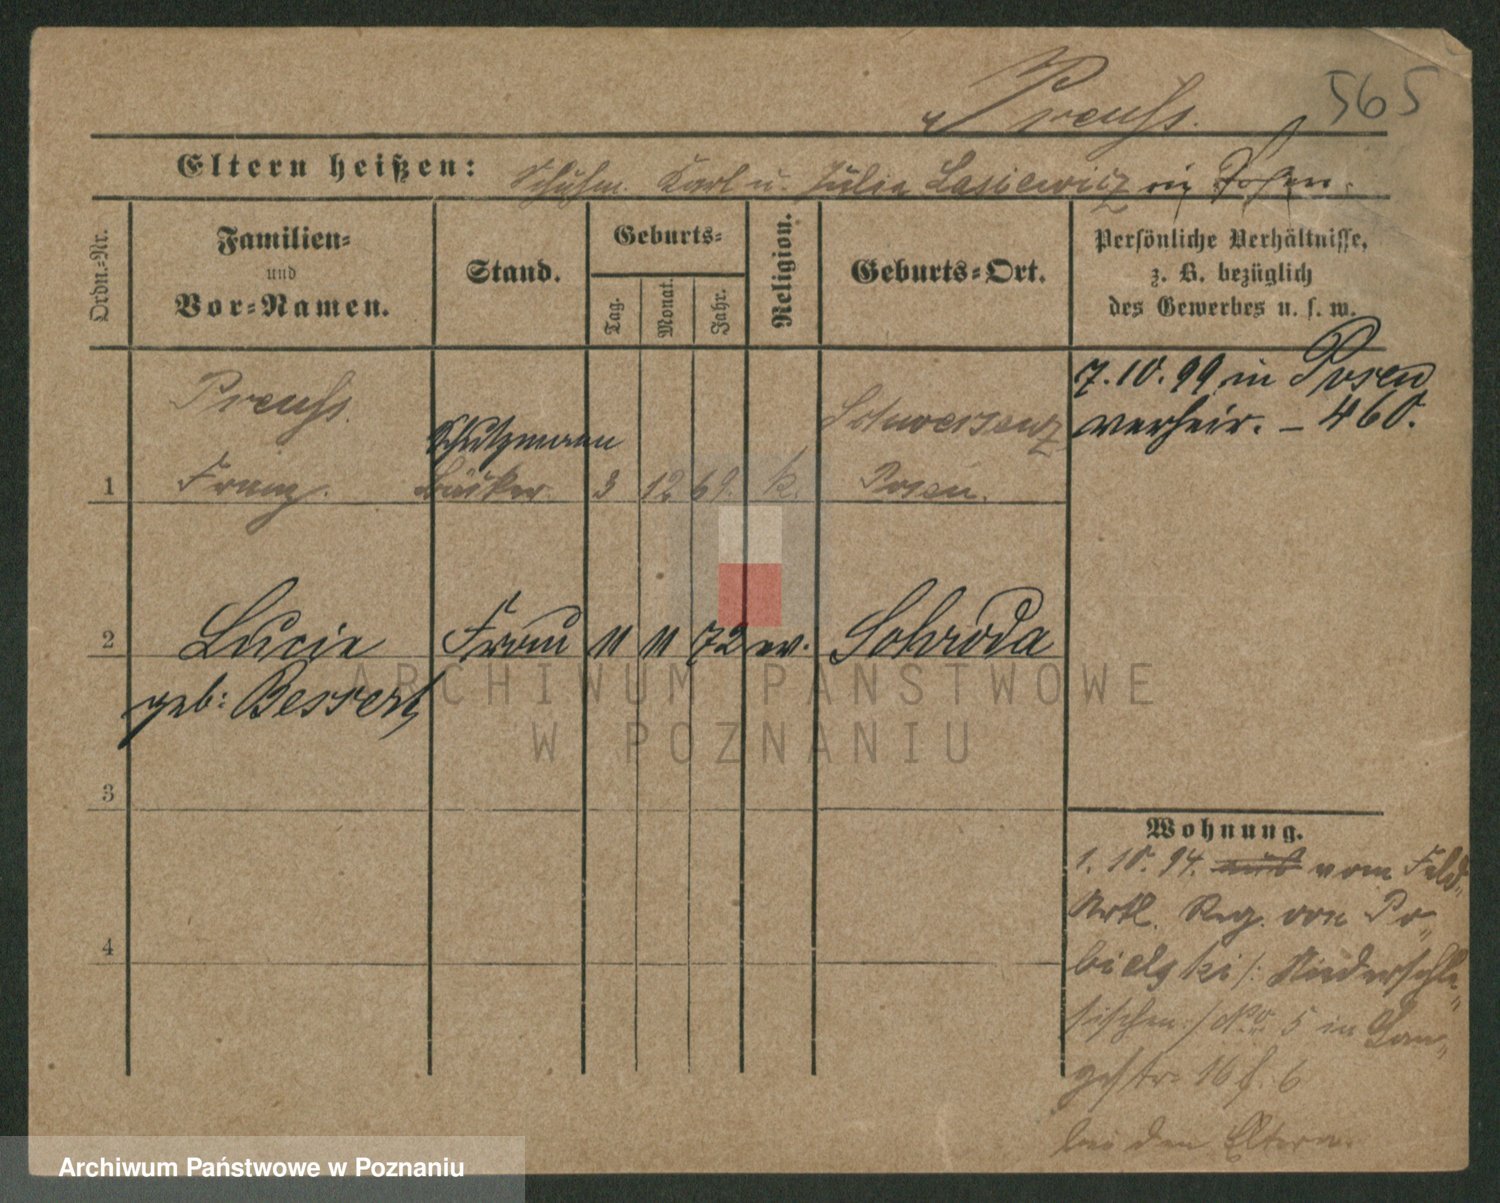 565
Preuß.
Eltern heißen: Schuhm. Karl u. Julia Lasiewicz in Posen.
Ordn.-Nr.
Familien-
und
Vor-Namen.
Stand.
Geburts-
Tag.
Monat.
Jahr.
Religion.
Geburts-Ort.
Persönliche Verhältnisse,
z. B. bezüglich
des Gewerbes u. s. w.
Preuß.
Schutzmann
Schwersenz
7.10.99 in Posen
verheir. – 460.
1 Franz. Bäcker 3 12 69. k. Posen.
2 Lucie Frau 11 11 72 ev. Schroda
geb: Bessert
3
4
Wohnung.
1.10.94. aus vom Feld-
Artl. Reg. von Po-
bielski /: Niederschle-
sischen :/ No 5 in
16
bei den Eltern.
ARCHIWUM PAŃSTWOWE
W POZNANIU
Archiwum Państwowe w Poznaniu